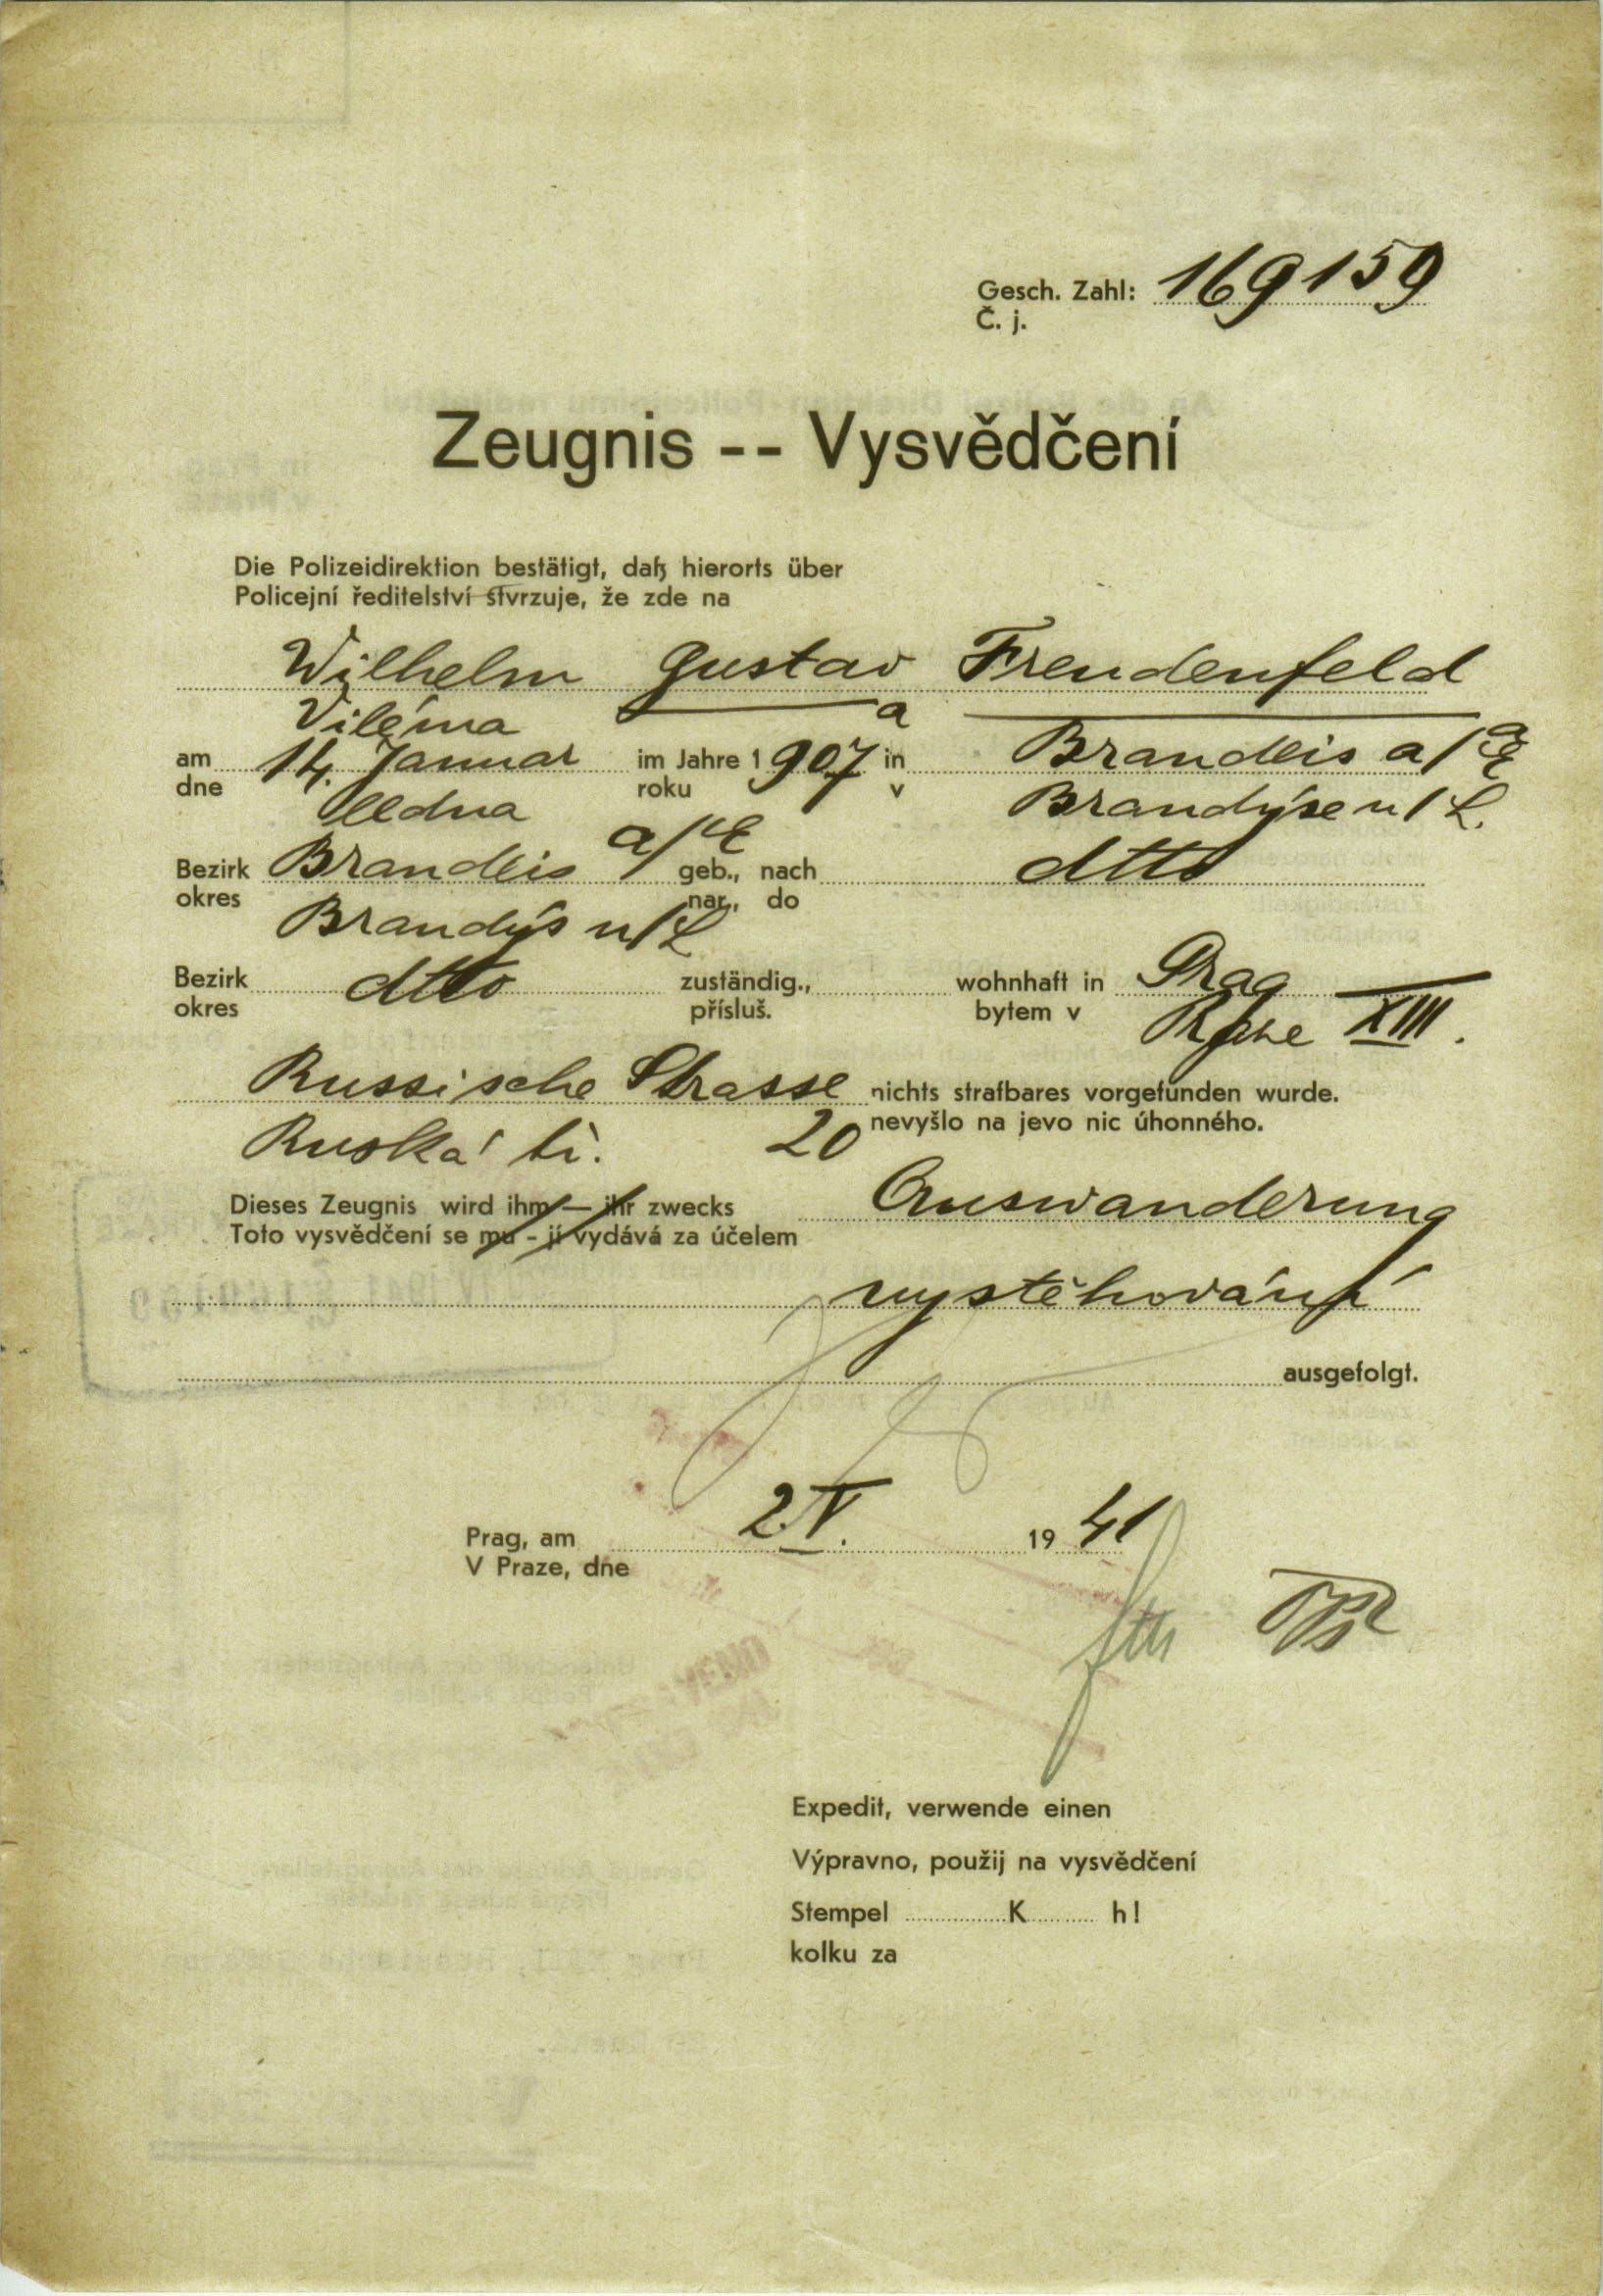 Gesch. Zahl: 169159
Č. j.
Zeugnis -- Vysvědčení
Die Polizeidirektion bestätigt, daß hierorts über
Policejní ředitelství stvrzuje, že zde na
Wilhelm Gustav Freudenfeld
Viléma a
am 14. Januar im Jahre 1907 in Brandeis a/E
dne ledna roku v Brandýse n/L.
Bezirk Brandeis a/E geb., nach dtto
okres Brandýs n/L nar., do
Bezirk dtto zuständig., wohnhaft in Prag XIII.
okres přísluš. bytem v Praze
Russische Strasse nichts strafbares vorgefunden wurde.
Ruská tř. 20 nevyšlo na jevo nic úhonného.
Dieses Zeugnis wird ihm — ihr zwecks Auswanderung
Toto vysvědčení se mu - jí vydává za účelem
vystěhování
ausgefolgt.
Prag, am 2.V. 1941
V Praze, dne
Expedit, verwende einen
Výpravno, použij na vysvědčení
Stempel K h!
kolku za